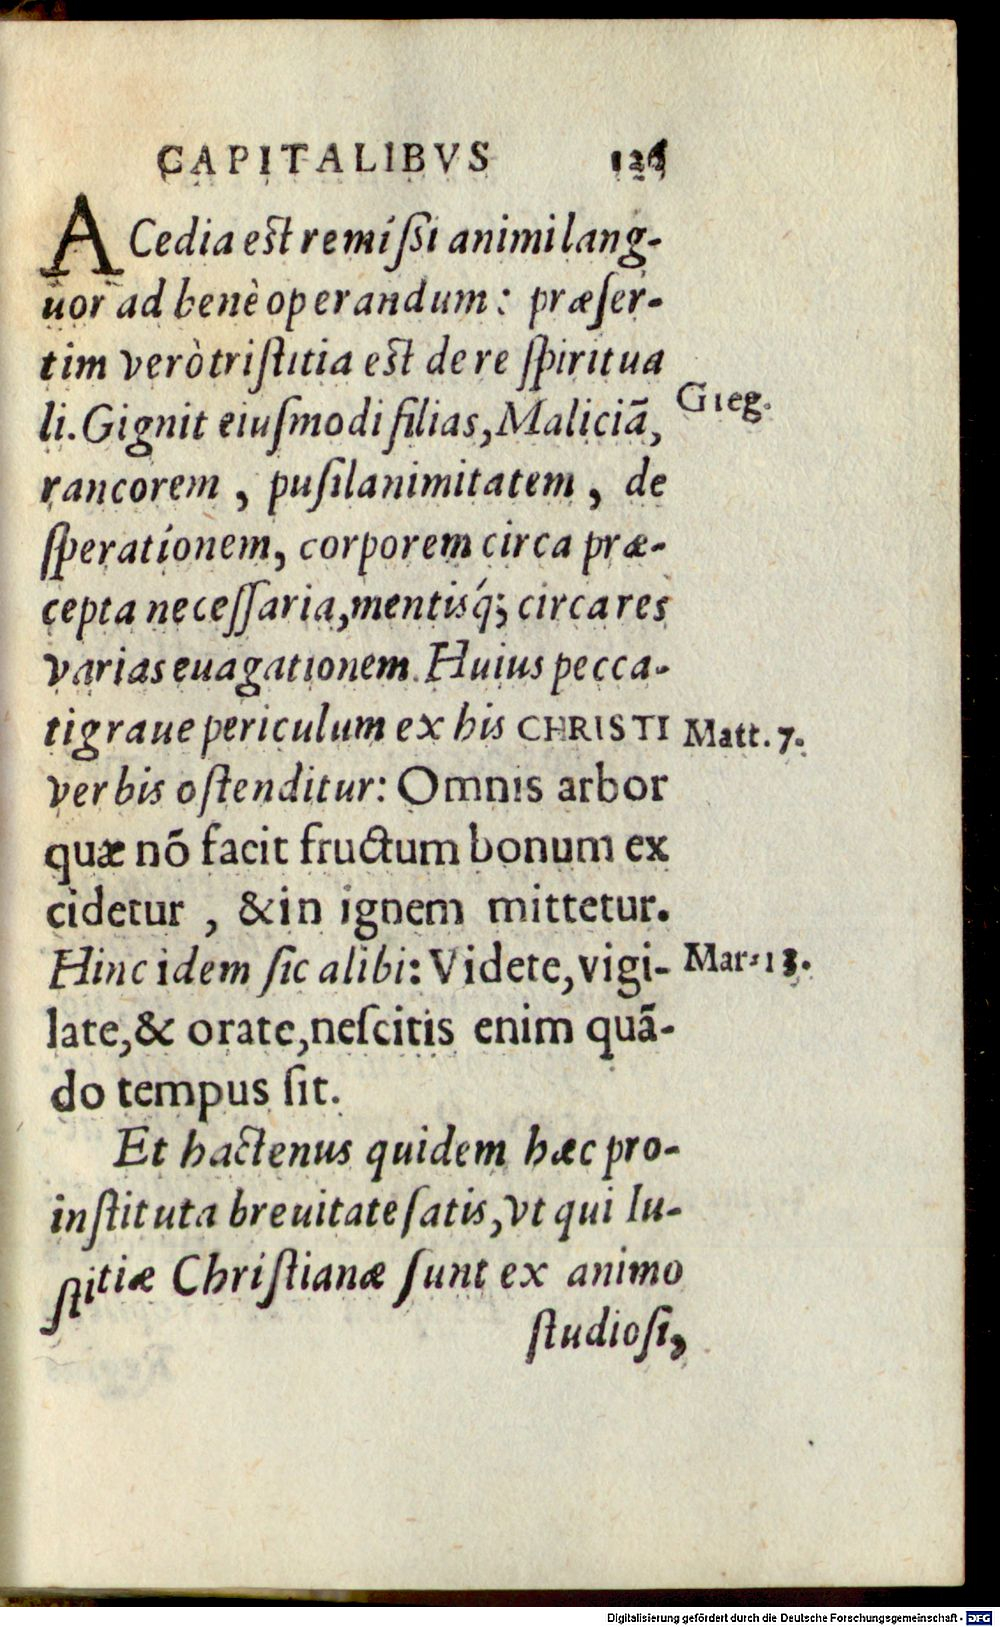 CAPITALIBVS 126
ACedia est remissi animi lang-
uor ad benè operandum: præser-
tim verò tristitia est de re spiritua
li. Gignit eiusmodi filias, Maliciã,
Greg.
rancorem, pusilanimitatem, de
sperationem, corporem circa præ-
cepta necessaria, mentisq́; circa res
varias euagationem. Huius pecca-
ti graue periculum ex his CHRISTI
Matt. 7.
verbis ostenditur: Omnis arbor
quæ nõ facit fructum bonum ex
cidetur, & in ignem mittetur.
Hinc idem sic alibi: Videte, vigi-
Mar. 13.
late, & orate, nescitis enim quã-
do tempus sit.
Et hactenus quidem hæc pro-
instituta breuitate satis, vt qui Iu-
stitiæ Christianæ sunt ex animo
studiosi,
Digitalisierung gefördert durch die Deutsche Forschungsgemeinschaft - DFG